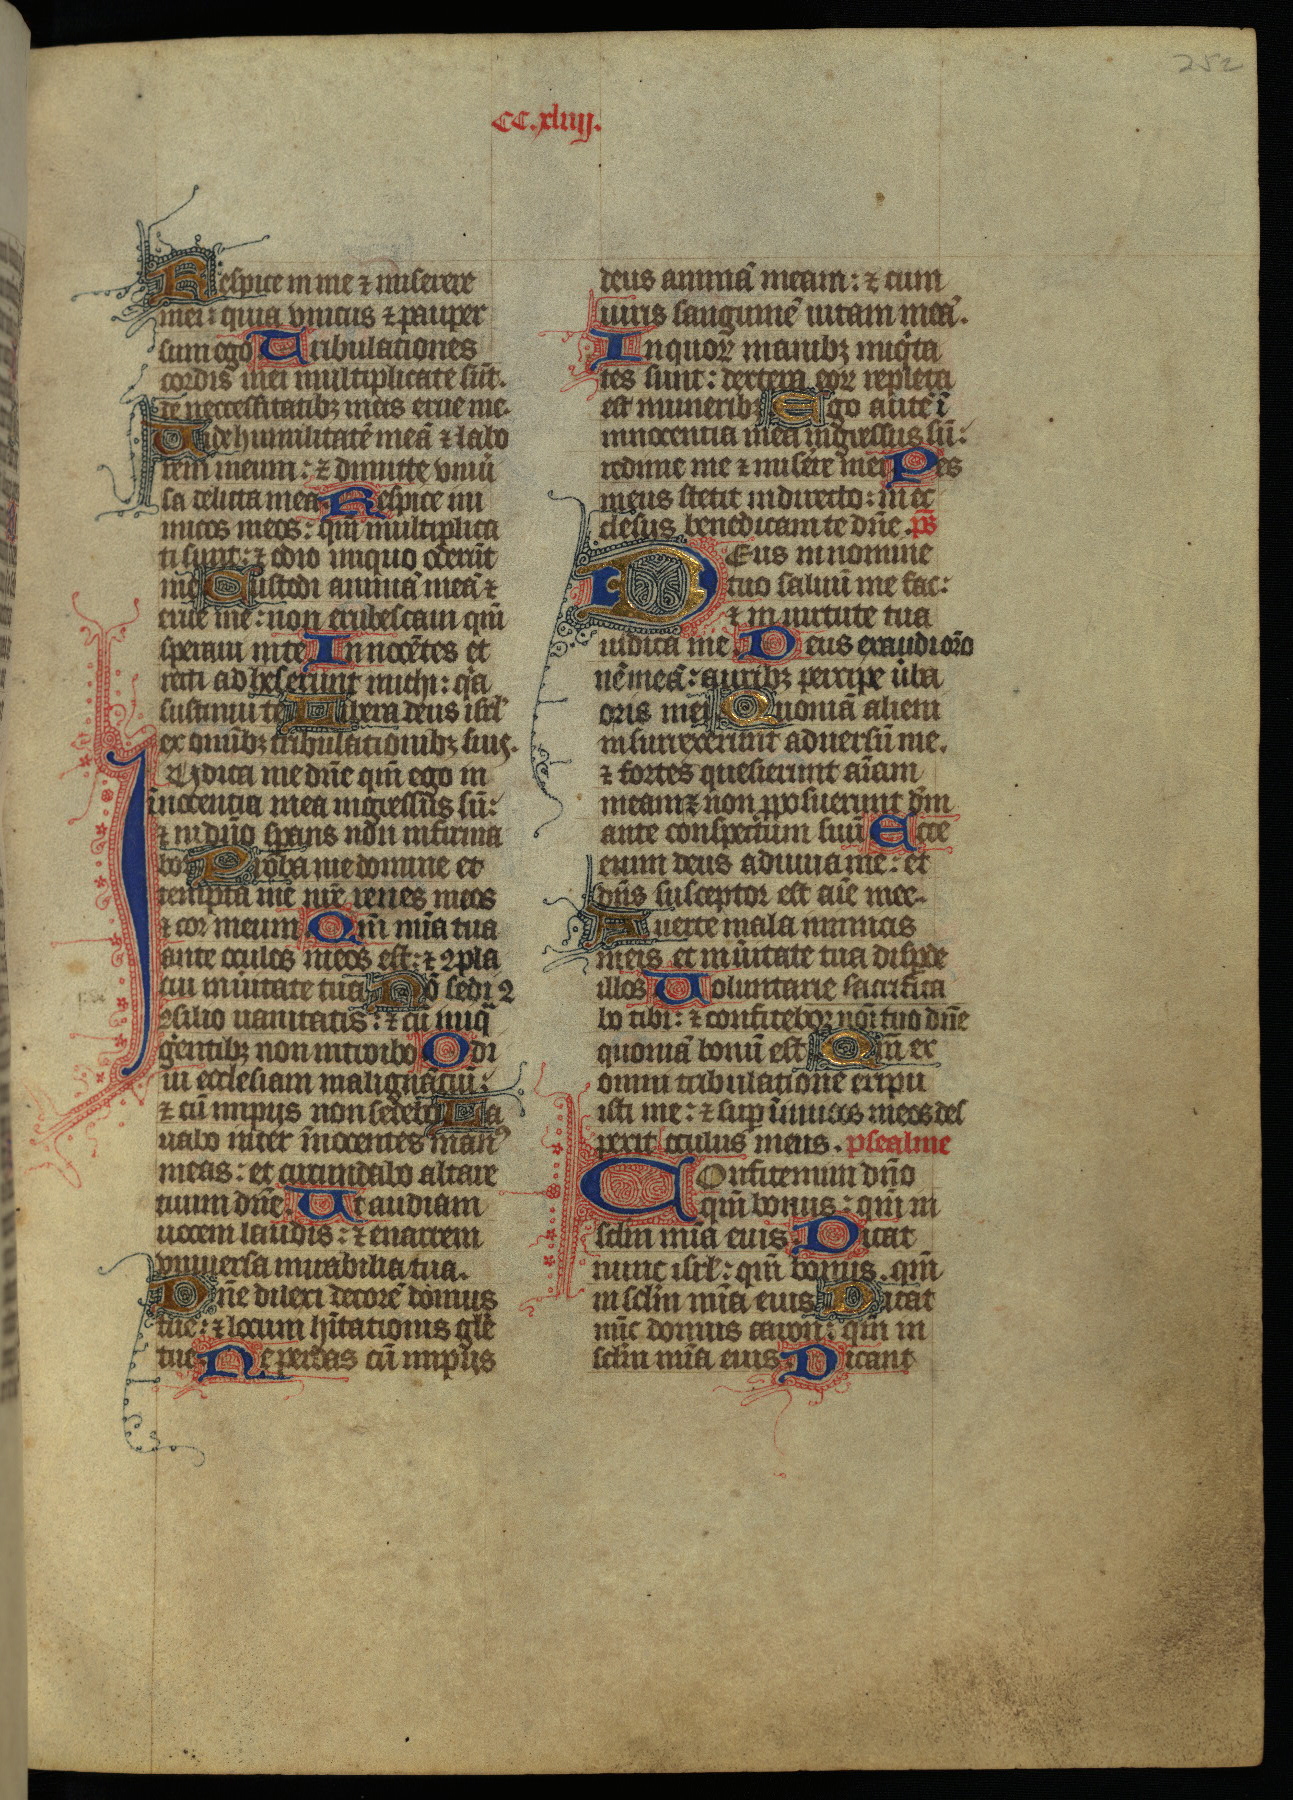 252
CC.xliiij.
Respice in me ⁊ miserere
mei: quia vnicus ⁊ pauper
sum ego Tribulationes
cordis mei multiplicate sūt.
de neccessitatibꝫ meis erue me.
Uide humilitatē meā ⁊ labo
rem meum: ⁊ dimitte vniu̾
sa delicta mea Respice ini
micos meos: qm̄ multiplica
ti sunt: ⁊ odio iniquo oderūt
me Custodi animā meā ⁊
erue me: non erubescam qm̄
speraui in te Innocētes et
recti adheserunt michi: qͥa
sustinui te Libera deus isrl̄
ex omībꝫ tribulationibꝫ suis.
IUdica me dn̄e qm̄ ego in
inocentia mea ingressus sū:
⁊ in dn̄o sperans nōn infirma
bor Proba me domine et
tempta me vre renes meos
⁊ cor meum Qm̄ mīa tua
ante oculos meos est: ⁊ ꝯpla
cui in u̾itate tua Nō sedi ꝯ
ꝯsilio uanitatis: ⁊ cū iniq̄
gentibꝫ non introibo Odi
ui ecclesiam malignātiū:
⁊ cū impijs non sedebo La
uabo inter īnocentes man⁹
meas: et circundabo altare
tuum dn̄e. Ut audiam
uocem laudis: ⁊ enarrem
vniuersa mirabilia tua.
Dn̄e dilexi decorē domus
tue: ⁊ locum hītationis glīe
tue Ne perdas cū impijs
deus animā meam: ⁊ cum
uiris sanguinē uitam meā.
In quoꝝ manibꝫ iniqͥta
tes sunt: dextera eoꝝ repleta
est muneribꝫ Ego aūte ī
innocentia mea ingressus sū:
redime me ⁊ miserē mei Pes
meus stetit in directo: in ec
clesijs benedicam te dn̄e. ps̄
Deus in nomine
tuo saluū me fac:
⁊ in uirtute tua
iudica me. Deus exaudi orō
nē meā: auribꝫ percipe u̾ba
oris mei Quoniā alieni
insurrexerunt aduersū me.
⁊ fortes quesierunt aīam
meam ⁊ non ꝓposuerunt dm̄
ante conspectum suū Ecce
enim deus adiuua me: et
dn̄s susceptor est aīe mee.
Auerte mala inimicis
meis et in u̾itate tua disꝑde
illos Uoluntarie sacrifica
bo tibi: ⁊ confitebor noī tuo dn̄e
quoniā bonū est Qm̄ ex
omni tribulatione eripu
isti me: ⁊ sup̱ inimicos meos des
pexit oculus meus. psealme
Confitemini dn̄o
qm̄ bonus: qm̄ in
sc̄lm mīa eius Dicat
nunc isrl̄: qm̄ bonus. qm̄
in sc̄lm mīa eius Dicat
nūc domus aaron: qm̄ in
sc̄lm mīa eius Dicant